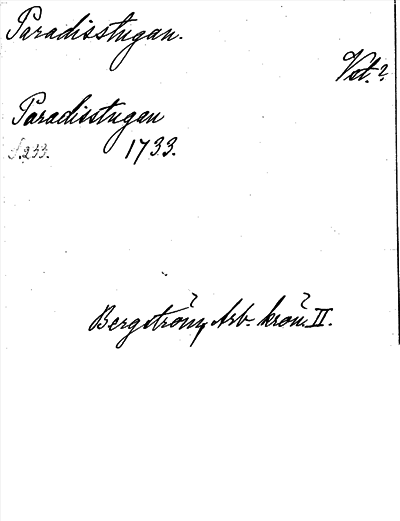 Paradisstugan.
Vst.?
Paradisstugan
S. 233. 1733.
Bergström, Arb. krön. II.